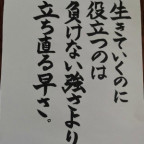 生きていくのに
役立つのは
負けない強さより
立ち直る早さ。